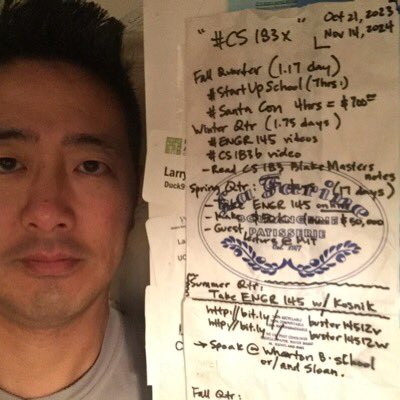 " #CS 183x "
Oct 21, 2023
Nov 14, 2024
Fall Quarter (1.17 day)
#StartUpSchool (7hrs:)
#Santa Con 4hrs = $700
Winter Qtr (1.75 days)
#ENGR 145 videos
#CS 183b video
- Read CS 183 Blake Masters notes
Spring Qtr: days)
Take ENGR 145 online
- Make $50,000
- Guest lecture @ MIT
PATISSERIE
Summer Qtr:
Take ENGR 145 w/ Kosnik
http://bit.ly/ buster14512v
http://bit.ly/ buster14512w
→ Speak @ Wharton B. School
or/and Sloan.
Fall Qtr:
Larry
Duck9